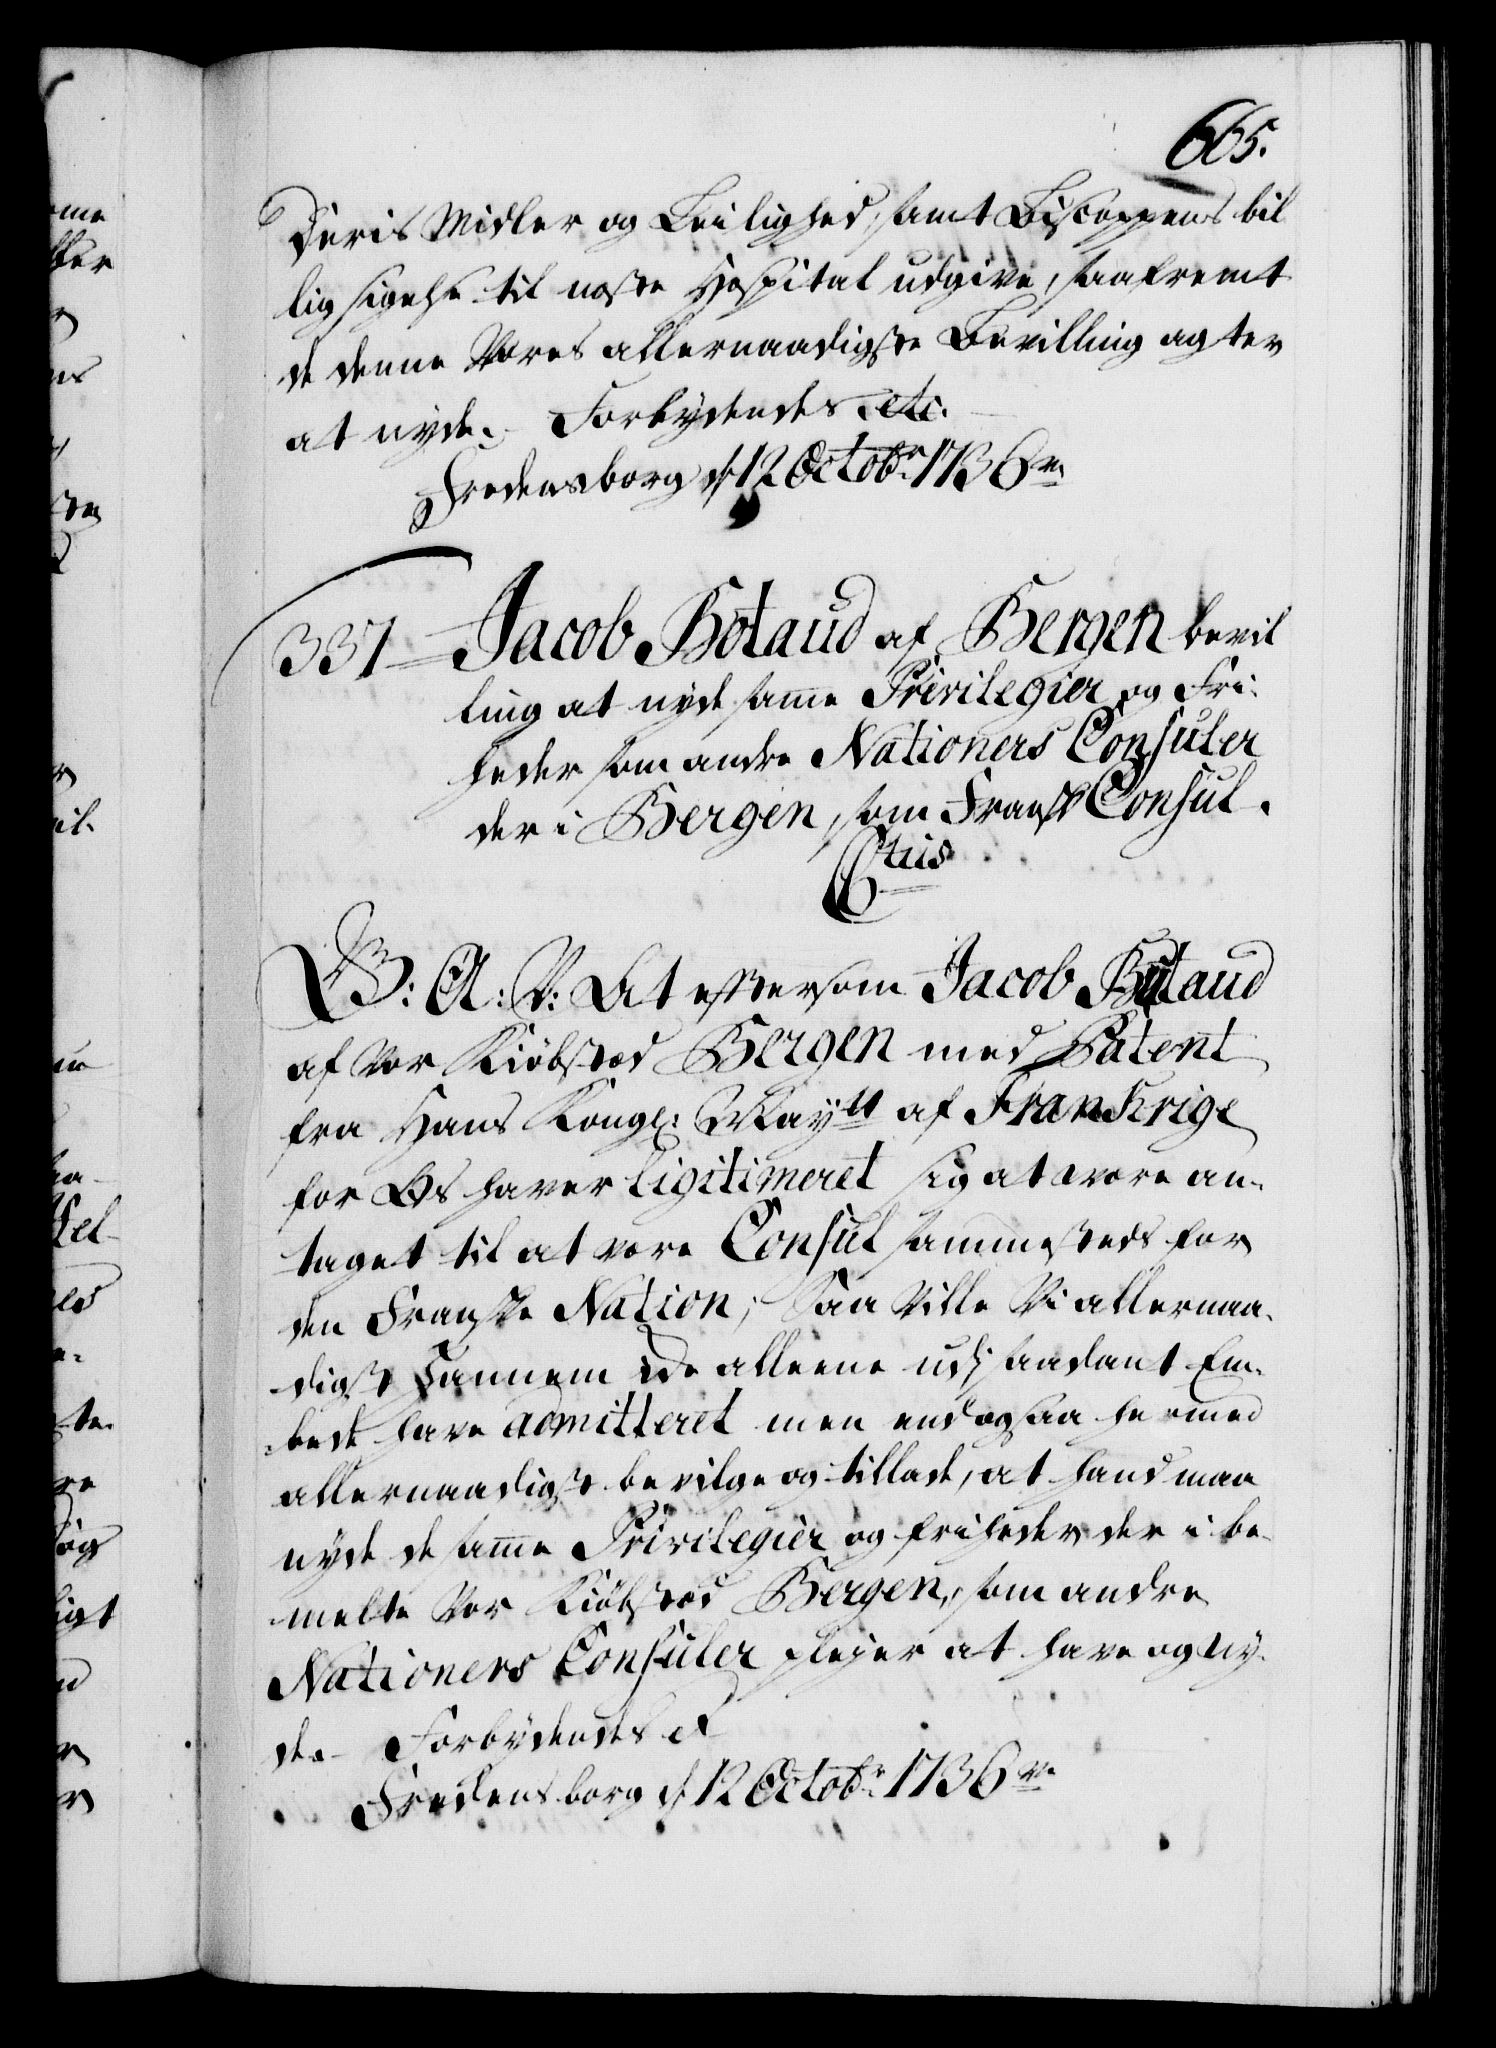 665.
Deris Midler og Leilighed, samt Biscoppens bil
lig sigelse til næste Hospital udgive, saafremt
de denne Vores allernaadigste Bevilling agter
at nyde. Forbydendes etc.
Fredensborg d 12 Octobr 1736
337 Jacob Butaud af Bergen bevil
ling at nyde same Privilegier og Fri-
heder som andre Nationers Consuler
der i Bergen, som Fransk Consul.
G: A: V: At eftersom Jacob Butaud
af Vor Kiøbsted Bergen med Patent
fra Hans Kongl: Maytt af Frankrige
for Os haver ligitimeret sig at være an-
taget til at være Consul sammesteds for
den Franske Nation; Saa Ville Vi allernaa-
digst Hannem ide alleene udj saadant Em-
bede have admitteret men endogsaa hermed
allernaadigst bevilge og tillade, at hand maa
nyde de same Privilegier og friheder der i be-
melte Vor Kiøbsted Bergen, som andre
Nationers Consuler plejer at have og ny-
de. Forbydendes
Fredensborg d 12 Octobr 1736